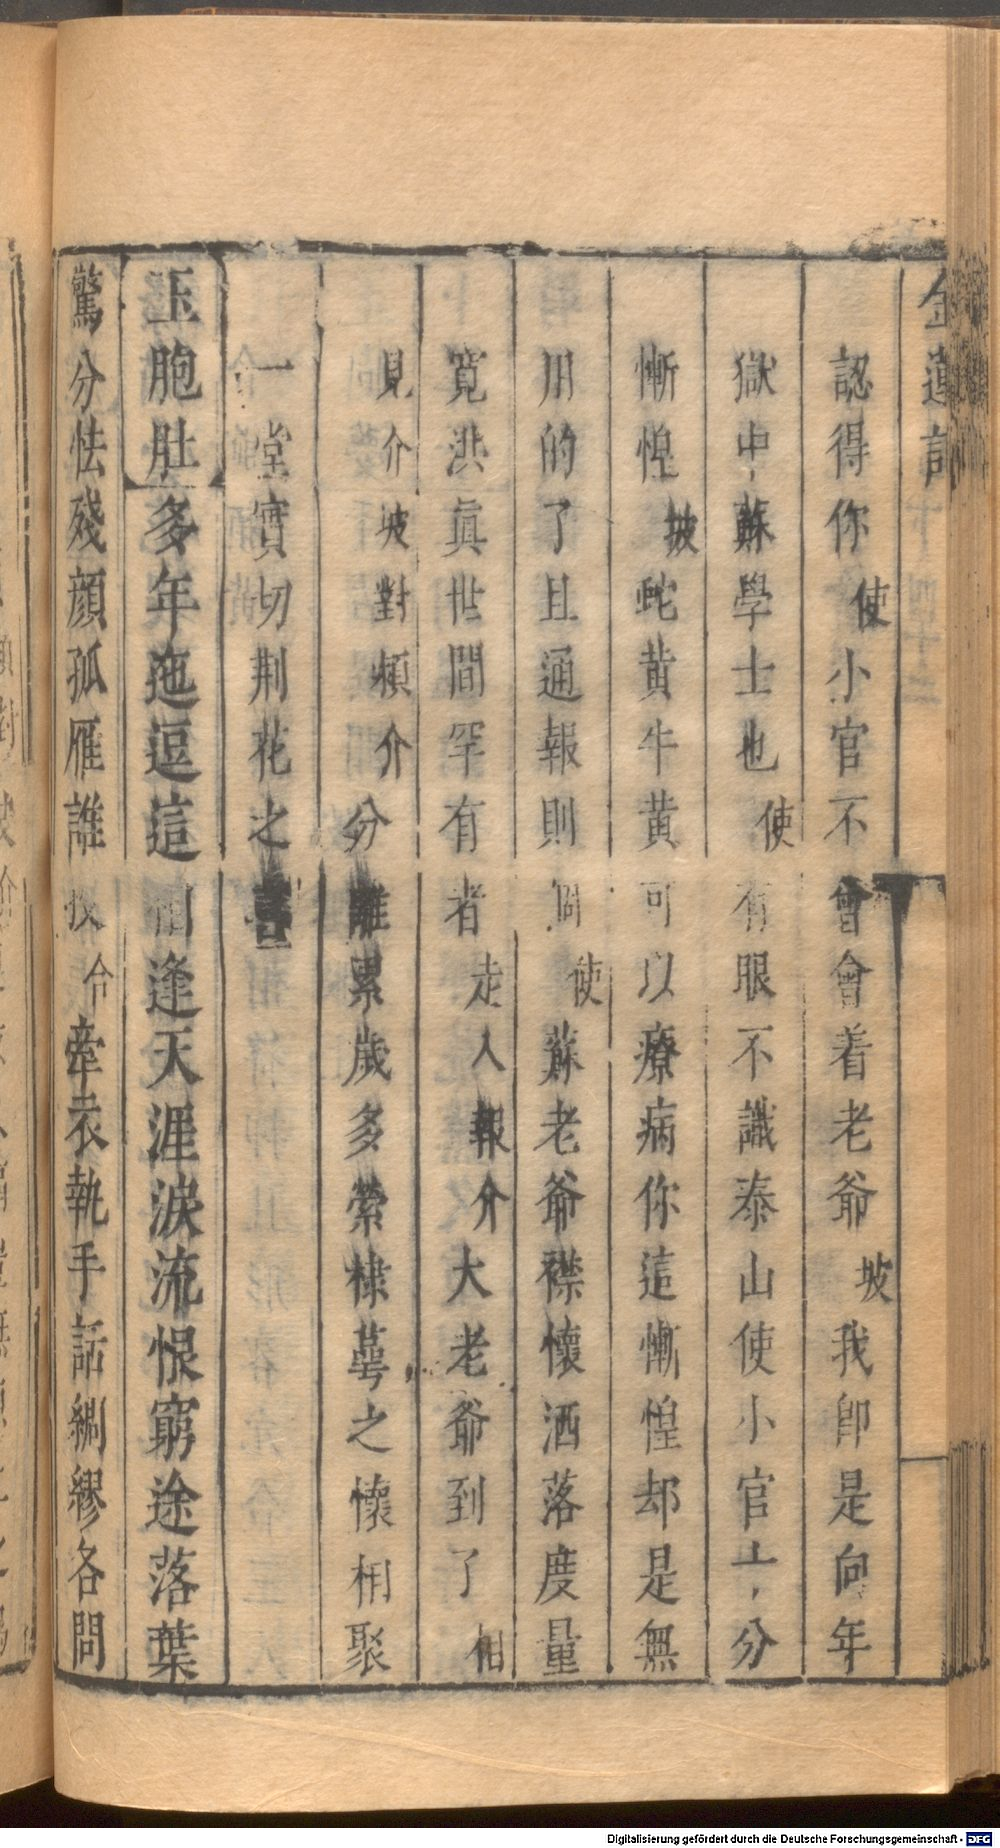 金蓮記
認得你使小官不曾會着老爺坡我卽是向年
獄中蘇學士也使有眼不識泰山使小官十分
慚惶坡蛇黃牛黃可以療病你這慚惶却是無
用的了且通報則個使蘇老爺襟懷洒落度量
寬洪眞世間罕有者走入報介大老爺到了相
見介坡對頻介分離累歲多縈棣萼之懷相聚
一堂實切荆花之喜
玉胞肚多年迤逗這相逢天涯淚流恨窮途落葉
驚分怯殘顏孤雁誰投合牽衣執手話綢繆各問
Digitalisierung gefördert durch die Deutsche Forschungsgemeinschaft - DFG